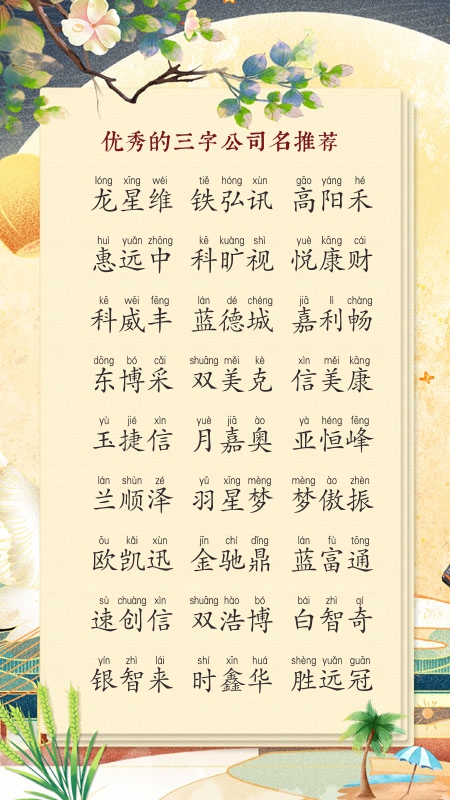 优秀的三字公司名推荐
lóng xīng wéi tiě hóng xùn gāo yáng hé
龙星维 铁弘讯 高阳禾
huì yuǎn zhōng kē kuàng shì yuè kāng cái
惠远中 科旷视 悦康财
kē wēi fēng lán dé chéng jiā lì chàng
科威丰 蓝德城 嘉利畅
dōng bó cǎi shuāng měi kè xìn měi kāng
东博采 双美克 信美康
yù jié xìn yuè jiā ào yà héng fēng
玉捷信 月嘉奥 亚恒峰
lán shùn zé yǔ xīng mèng mèng ào zhèn
兰顺泽 羽星梦 梦傲振
ōu kǎi xùn jīn chí dǐng lán fù tōng
欧凯迅 金驰鼎 蓝富通
sù chuàng xìn shuāng hào bó bái zhì qí
速创信 双浩博 白智奇
yín zhì lái shí xīn huá shèng yuǎn guān
银智来 时鑫华 胜远冠